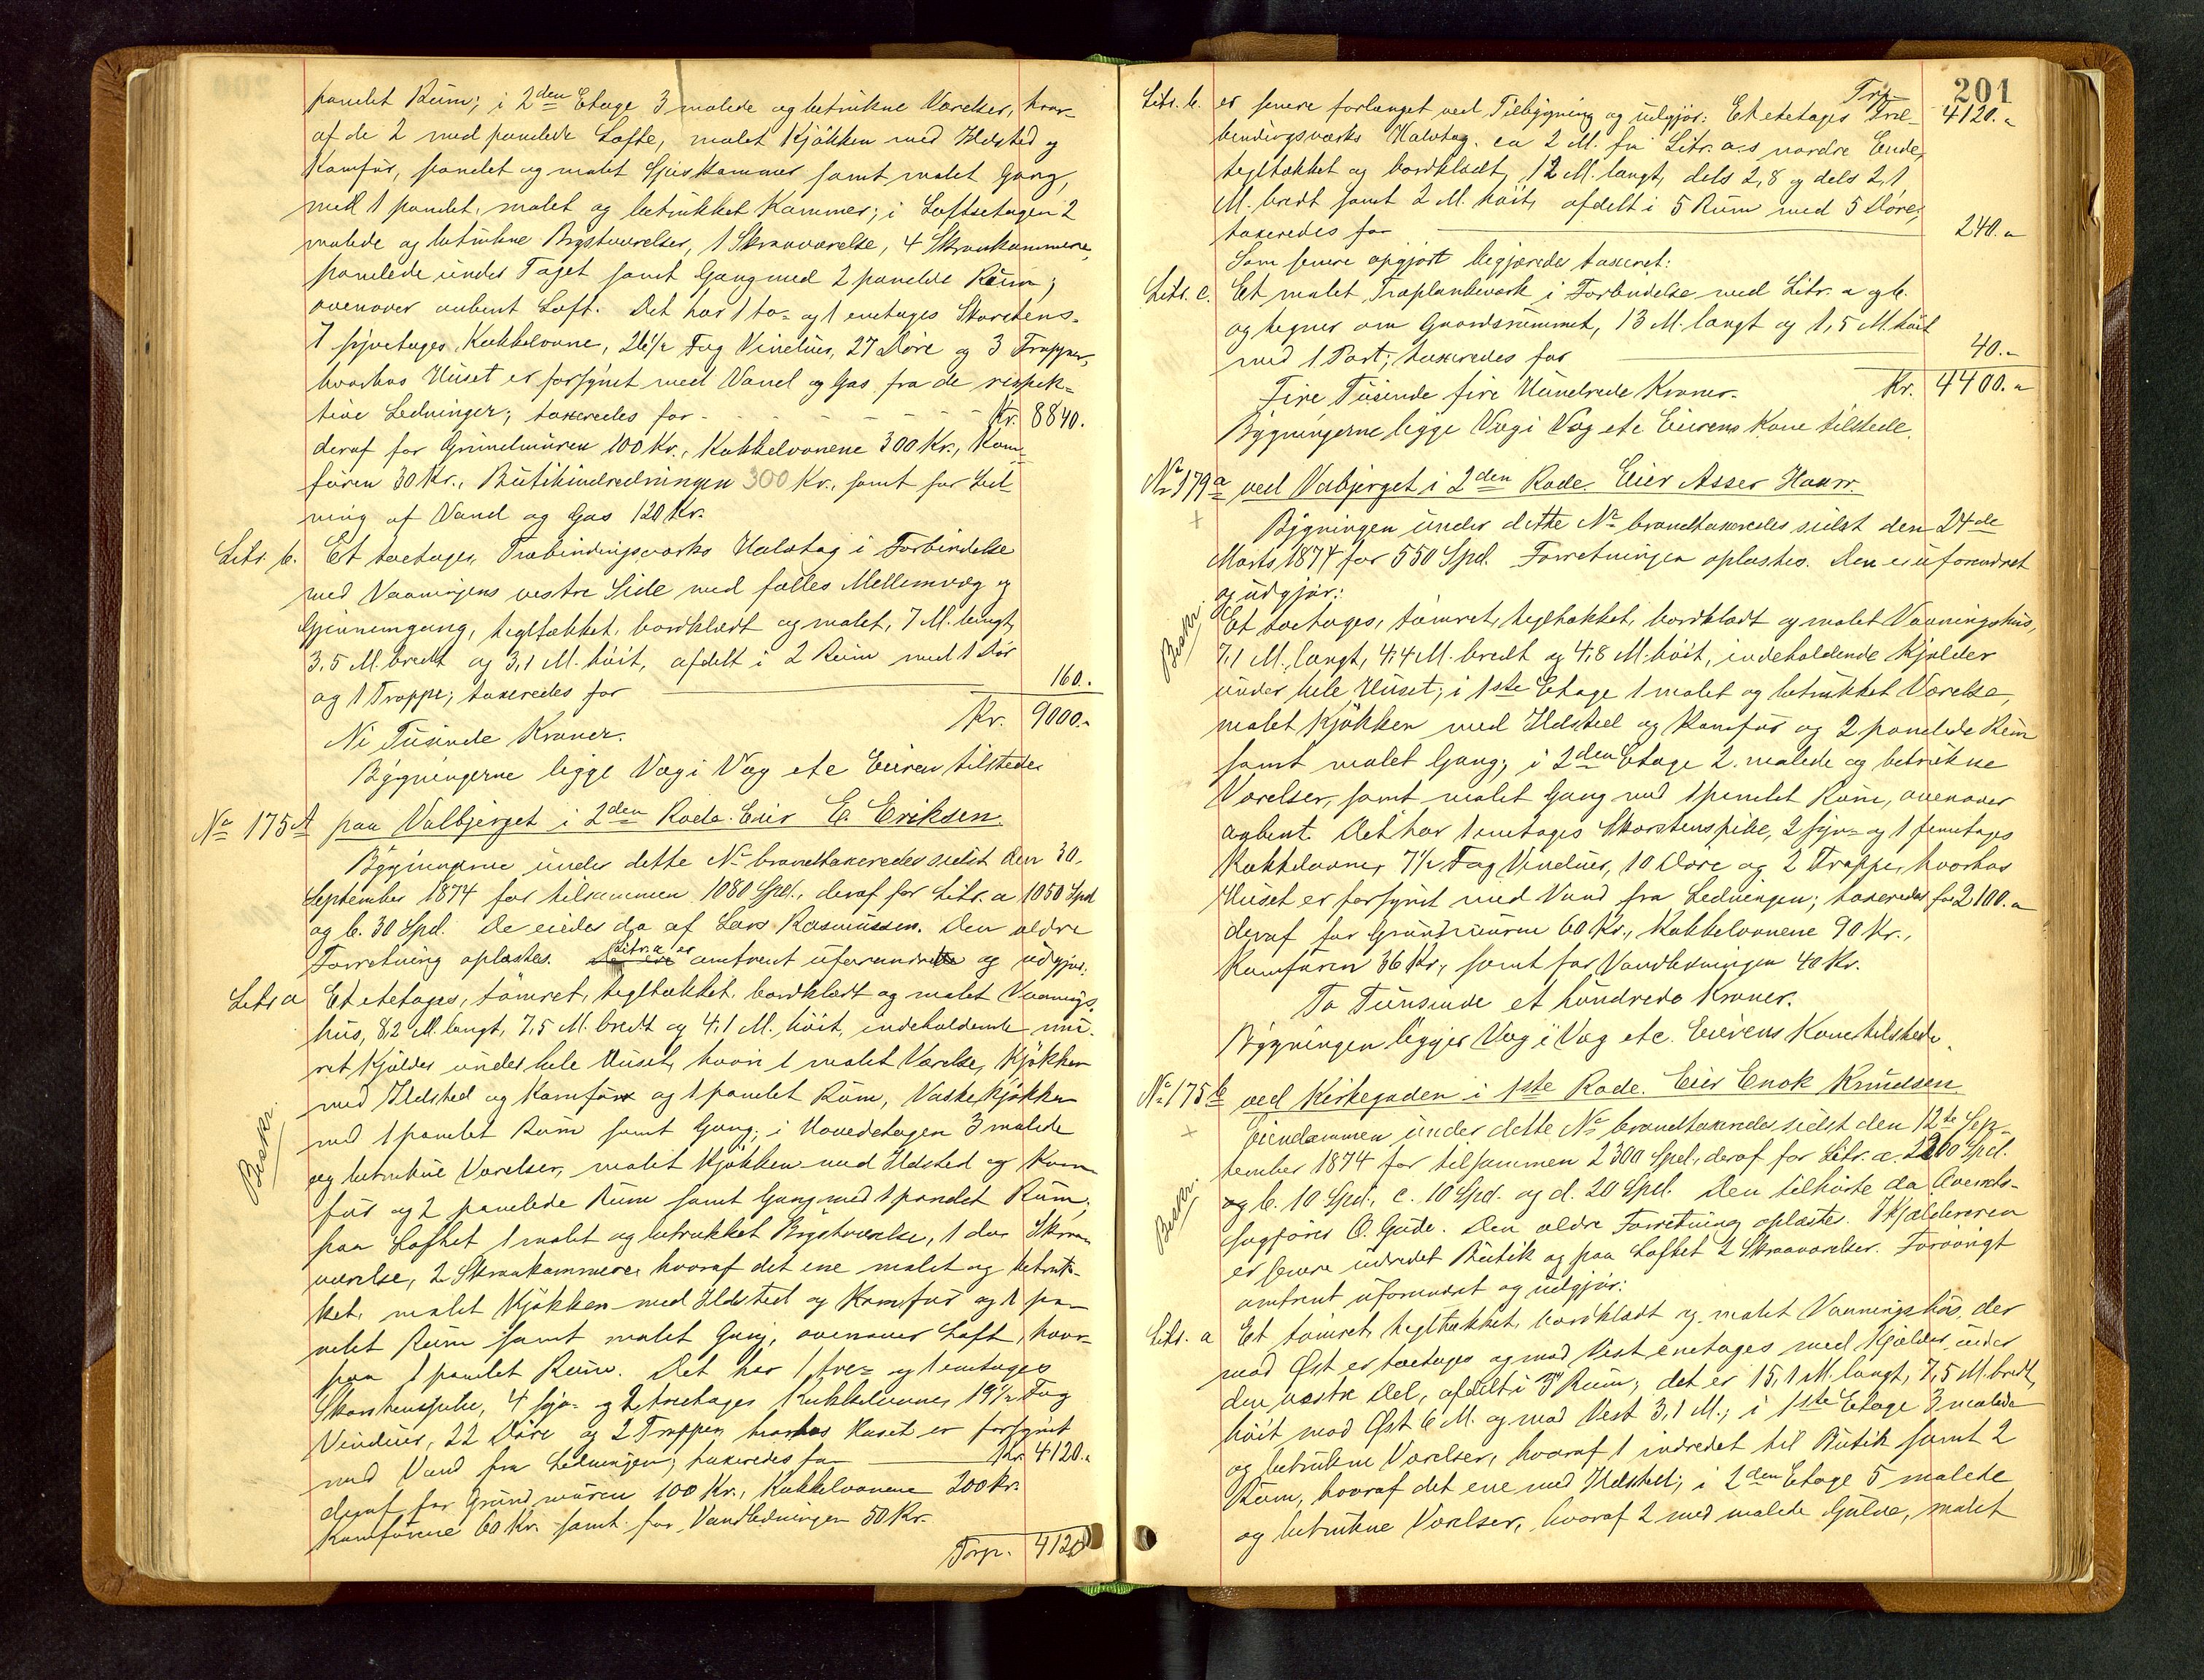 panelet Rum; i 2den Etage 3 malede og betrukne Værelser, hvor-
af de 2 med panelede Lofte, malet Kjøkken med Ildsted og
Komfur, panelet og malet Spiskammer samt malet Gang,
med 1 panelet, malet og betrukket Kammer; i Loftsetagen 2
malede og betrukne Brystværelser, 1 Skraaværelse, 4 Skraakammere,
panelede under Taget samt Gang med 2 panelede Rum;
ovenover aabent Loft. Det har 1 to- og 1 enetages Skorstens-
7 fyretages Kakkelovne, 26 1/2 Fag Vinduer, 27 Døre og 3 Trapper,
hvorhos Huset er forsynet med Vand og Gas fra de respek-
tive Ledninger; taxeredes for - - - - - - - Kr. 8840.
deraf for Grundmuren 100 Kr., Kakkelovnene 300 Kr., Kom-
furen 30 Kr., Butikindredningen 300 Kr., samt for Led-
ning af Vand og Gas 120 Kr.
Litr. b. Et toetages, Træbindingsværks Halvtag i Forbindelse
med Vaaningens vestre Side med fælles Mellemvæg og
Gjennemgang, tegltækket, bordklædt og malet, 7 M. langt,
3,5 M. bredt og 3,1 M. höit, afdelt i 2 Rum med 1 Dör
og 1 Trappe; taxeredes for 160.
Ni Tusinde Kroner. Kr. 9000.-
Bygningerne ligge Væg i Væg etc Eieren tilstede.
No 175 A paa Valbjerget i 2den Rode. Eier E. Eriksen.
Bygningerne under dette No brandtaxeredes sidst den 30.
September 1874 for tilsammen 1080 Spd., deraf for Litr. a 1050 Spd
og b. 30 Spd. De eiedes da af Lars Rasmussen. Den ældre
Forretning oplæstes. Litr. a er omtrent uforandret og udgjör:
Litr a Et etetages, tömret, tegltækket, bordklædt og malet Vaanings-
hus, 8,2 M. langt, 7,5 M. bredt og 4,1 M. höit, indeholdende mu-
ret Kjælder under hele Huset, hvori 1 malet Værelse, Kjøkken
med Ildsted og Komfur og 1 panelet Rum, Vaskekjøkken
Beskr.
med 1 panelet Rum samt Gang; i Hovedetagen 3 malede
og betrukne Værelser, malet Kjøkken med Ildsted og Kom-
fur og 2 panelede Rum samt Gang med 1 panelet Rum;
paa Loftet 1 malet og betrukket Brystværelse, 1 do Skraa-
værelse, 2 Skraakammere, hvoraf det ene malet og betruk-
ket, malet Kjøkken med Ildsted og Komfur og 1 pa-
nelet Rum samt malet Gang, ovenover Loft, hvor-
paa 1 panelet Rum. Det har 1 tre- og 1 enetages
Skorstenspibe, 4 fyr- og 2 treetages Kakkelovne, 19 1/2 Fag
Vinduer, 22 Døre og 2 Trapper, hvorhos Huset er forsynet
med Vand fra Ledningen; taxeredes for Kr. 4120.-
deraf for Grundmuren 100 Kr., Kakkelovnene 200 Kr.
Komfurene 60 Kr. samt for Vandledningen 50 Kr.
Trp. 4120
201
Trp 4120.-
Litr. b. er senere forlænget ved Tilbygning og udgjör: Et etetages Træ-
bindingsværks Halvtag ca 2 M. fra Litr. a.s nordre Ende,
tegltækket og bordklædt, 12 M. langt, dels 2,8 og dels 2,1
M. bredt samt 2 M. höit, afdelt i 5 Rum med 5 Döre;
taxeredes for 240.-
Som senere opgjört begjæredes taxeret:
Litr. c. Et malet Træplankeværk i Forbindelse med Litr. a og b.
og hegner om Gaardsrummet, 13 M. langt og 1,5 M. höit
med 1 Port; taxeredes for 40.-
Fire Tusinde fire Hundrede Kroner. Kr. 4400.-
Bygningerne ligge Væg i Væg etc Eierens Kone tilstede.
No 179 a ved Valbjerget i 2den Rode. Eier Asser Haver.
Bygningen under dette No brandtaxeredes sidst den 24de
Marts 1874 for 550 Spd. Forretningen oplæstes. Den er uforandret
og udgjör:
Beskr.
Et toetages, tömret, tegltækket, bordklædt og malet Vaaningshus,
7,1 M. langt, 4,4 M. bredt og 4,8 M. höit, indeholdende Kjælder
under hele Huset; i 1ste Etage 1 malet og betrukket Værelse,
malet Kjøkken med Ildsted og Komfur og 2 panelede Rum
samt malet Gang; i 2den Etage 2 malede og betrukne
Værelser, samt malet Gang med 1 panelet Rum, ovenover
aabent. Det har 1 enetages Skorstenspibe, 2 fyr- og 1 femetages
Kakkelovne, 7 1/2 Fag Vinduer, 10 Döre og 2 Trapper, hvorhos
Huset er forsynet med Vand fra Ledningen; taxeredes for 2100.-
deraf for Grundmuren 60 Kr., Kakkelovnene 90 Kr.,
Komfuren 36 Kr., samt for Vandledningen 40 Kr.
To Tunsinde et hundrede Kroner.
Bygningen ligger Væg i Væg etc. Eierens Kone tilstede.
No 175 b ved Kirkegaden i 1ste Rode. Eier Enok Knudsen
Eiendommen under dette No brandtaxeredes sidst den 12te Sep-
tember 1874 for tilsammen 2300 Spd., deraf for Litr. a. 2260 Spd.
Beskr.
og b. 10 Spd., c. 10 Spd. og d. 20 Spd. Den tilhörte da Overrets-
sagförer O. Gude. Den ældre Forretning oplæstes. I Kjælderen
er senere indredet Butik og paa Loftet 2 Skraaværelser. Forövrigt
omtrent uforandret og udgjör:
Litr. a Et tömret, tegltækket, bordklædt og malet Vaaningshus, der
mod Øst er toetages og mod Vest enetages med Kjælder under
den vestre Del, afdelt i 3 Rum; det er 15,1 M. langt, 7,5 M. bredt,
höit mod Øst 6 M. og mod Vest 3,1 M.; i 1ste Etage 3 malede
og betrukne Værelser, hvoraf 1 indredet til Butik samt 2
Rum, hvoraf det ene med Ildsted; i 2den Etage 5 malede
og betrukne Værelser, hvoraf 2 med malede Gulve, malet